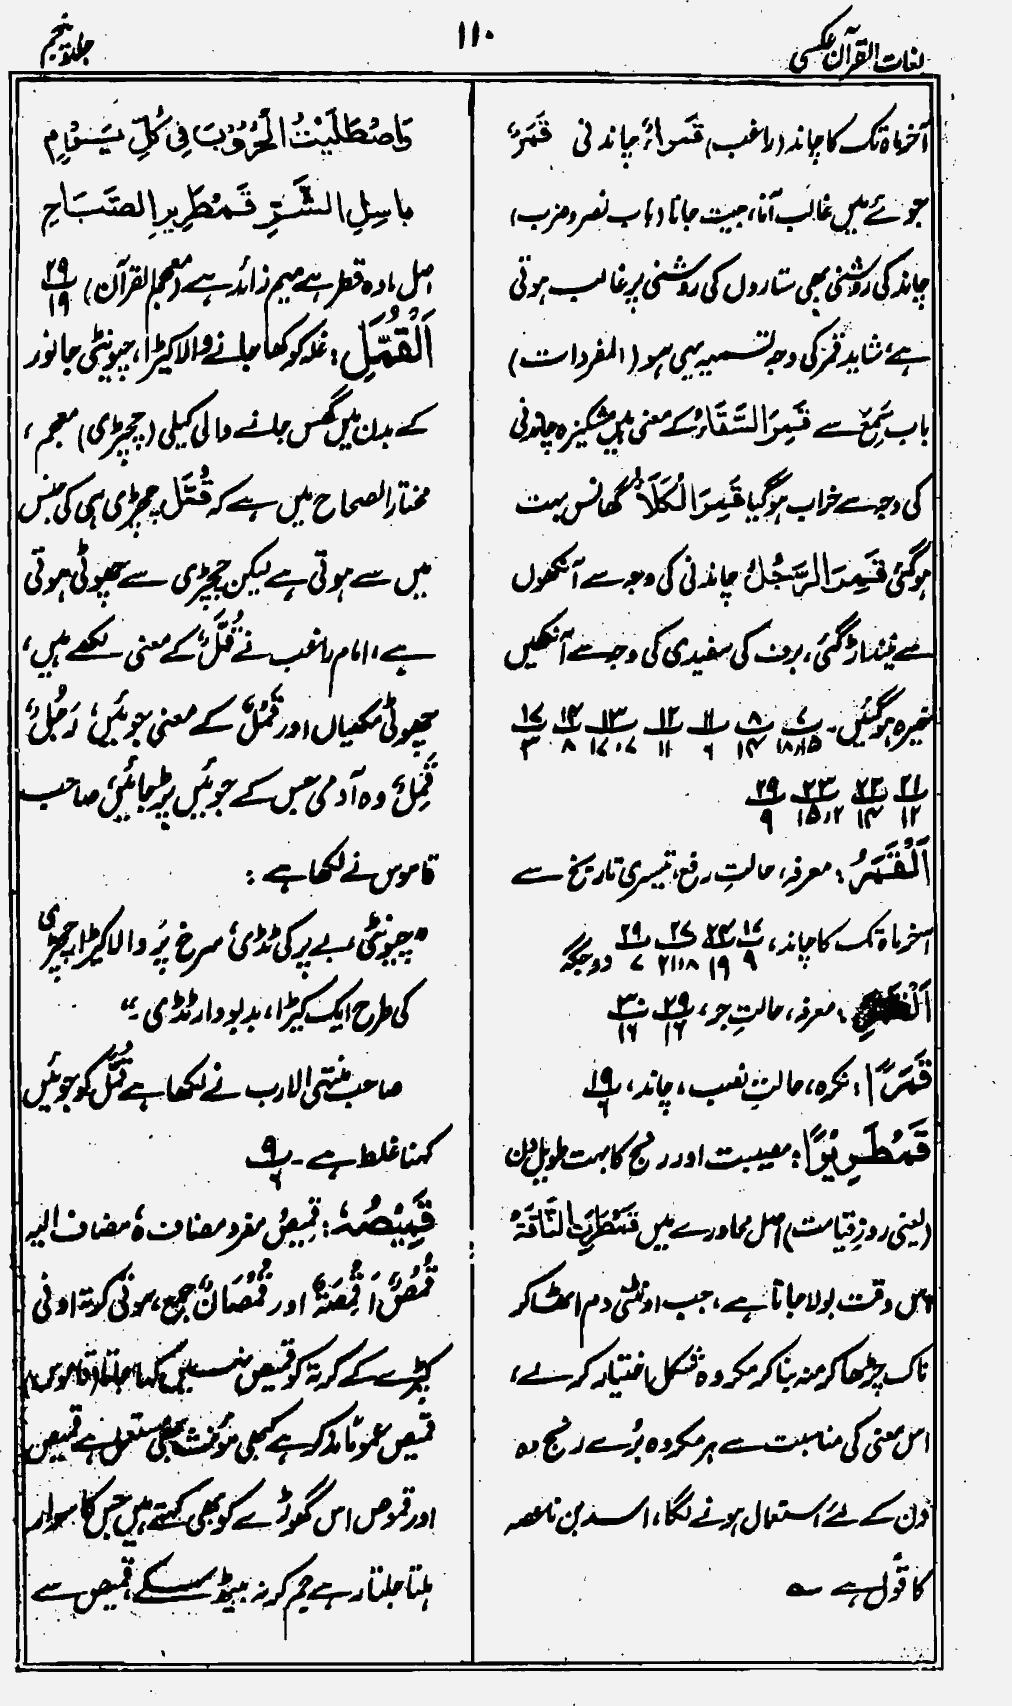 لغات القرآن عکسی
۱۱۰
جلد پنجم
آخر ماہ تک کا چاند (راغب) قَمْرَاءُ چاندنی قَمَرَ
جوئے میں غالب آنا، جیت جانا (باب نصر و ضرب)
چاند کی روشنی بھی ستاروں کی روشنی پر غالب ہوتی
ہے، شاید قمر کی وجہ تسمیہ یہی ہو (المفردات)
باب سَمِعَ سے قَمِرَ السَّقَاءُ کے معنی ہیں مشکیزہ چاندنی
کی وجہ سے خراب ہو گیا قَمِرَ الْکَلَأُ گھانس بہت
ہو گئی قَمِرَ الرَّجُلُ چاندنی کی وجہ سے آنکھوں
سے نیند اڑ گئی، برف کی سفیدی کی وجہ سے آنکھیں
خیرہ ہو گئیں۔ ۷/۱۸،۱۵ ۸/۱۴ ۱۱/۶ ۱۲/۱۱ ۱۳/۱۷،۷ ۱۴/۸ ۱۷/۳
۲۱/۱۲ ۲۲/۱۴ ۲۳/۱۵،۲ ۲۹/۹
اَلْقَمَرُ: معرفہ، حالتِ رفع، تیسری تاریخ سے
آخر ماہ تک کا چاند، ۱۷/۹ ۲۳/۱۹ ۲۷/۲۱،۱۸ ۲۹/۷ دو جگہ
: معرفہ، حالتِ جر، ۲۹/۱۶ ۳۰/۱۶
قَمَرًا: نکرہ، حالتِ نصب، چاند، ۱۹/۶
قَمْطَرِیْرًا: مصیبت اور رنج کا بہت طویل دن
(یعنی روزِ قیامت) اصل محاورے میں قَمْطَرَتِ النَّاقَۃُ
اس وقت بولا جاتا ہے، جب اونٹنی دم اٹھا کر
ناک چڑھا کر منہ بنا کر مکروہ شکل اختیار کر لے،
اس معنی کی مناسبت سے ہر مکروہ بُرے رنج دہ
دن کے لئے استعمال ہونے لگا، اسد بن ناعصہ
کا قول ہے ؎
وَاصْطَلَیْتُ الْحُرُوْبَ فِی کُلِّ یَوْمٍ
بَاسِلِ الشَّرِّ قَمْطَرِیرِ الصَّبَاحِ
اصل مادہ قطر ہے میم زائد ہے (معجم القرآن) ۲۹/۱۹
اَلْقُمَّلَ: غلہ کو کھا جانے والا کیڑا، چیونٹی جانور
کے بدن میں گھس جانے والی کیلی (چچڑی) معجم،
مختار الصحاح میں ہے کہ قُمَّل چچڑی ہی کی جنس
میں سے ہوتی ہے لیکن چچڑی سے چھوٹی ہوتی
ہے، امام راغب نے قُمَّلٌ کے معنی لکھے ہیں،
چھوٹی مکھیاں اور قَمْلٌ کے معنی جوئیں، رَجُلٌ
قَمِلٌ وہ آدمی جس کے جوئیں پڑ جائیں، صاحب
قاموس نے لکھا ہے:
"چیونٹی بے پر کی ٹڈی، سرخ پَر والا کیڑا، چچڑی
کی طرح ایک کیڑا، بدبودار ٹڈی۔"
صاحب منتہی الارب نے لکھا ہے قُمَّل کو جوئیں
کہنا غلط ہے۔ ۹/۶
قَمِیْصُہٗ: قَمِیْصُ مفرد مضاف ہٗ مضاف الیہ
قُمُصٌ اَقْمِصَۃٌ اور قُمْصَانٌ جمع، سوتی کرتہ اونی
کپڑے کے کرتہ کو قمیص نہیں کہا جاتا (قاموس)
قمیص عموماً مذکر ہے کبھی مؤنث بھی مستعمل ہے قمیص
اور قموص اس گھوڑے کو بھی کہتے ہیں جس کا سوار
ہلتا جلتا رہے جم کر نہ بیٹھ سکے، قمیص سے